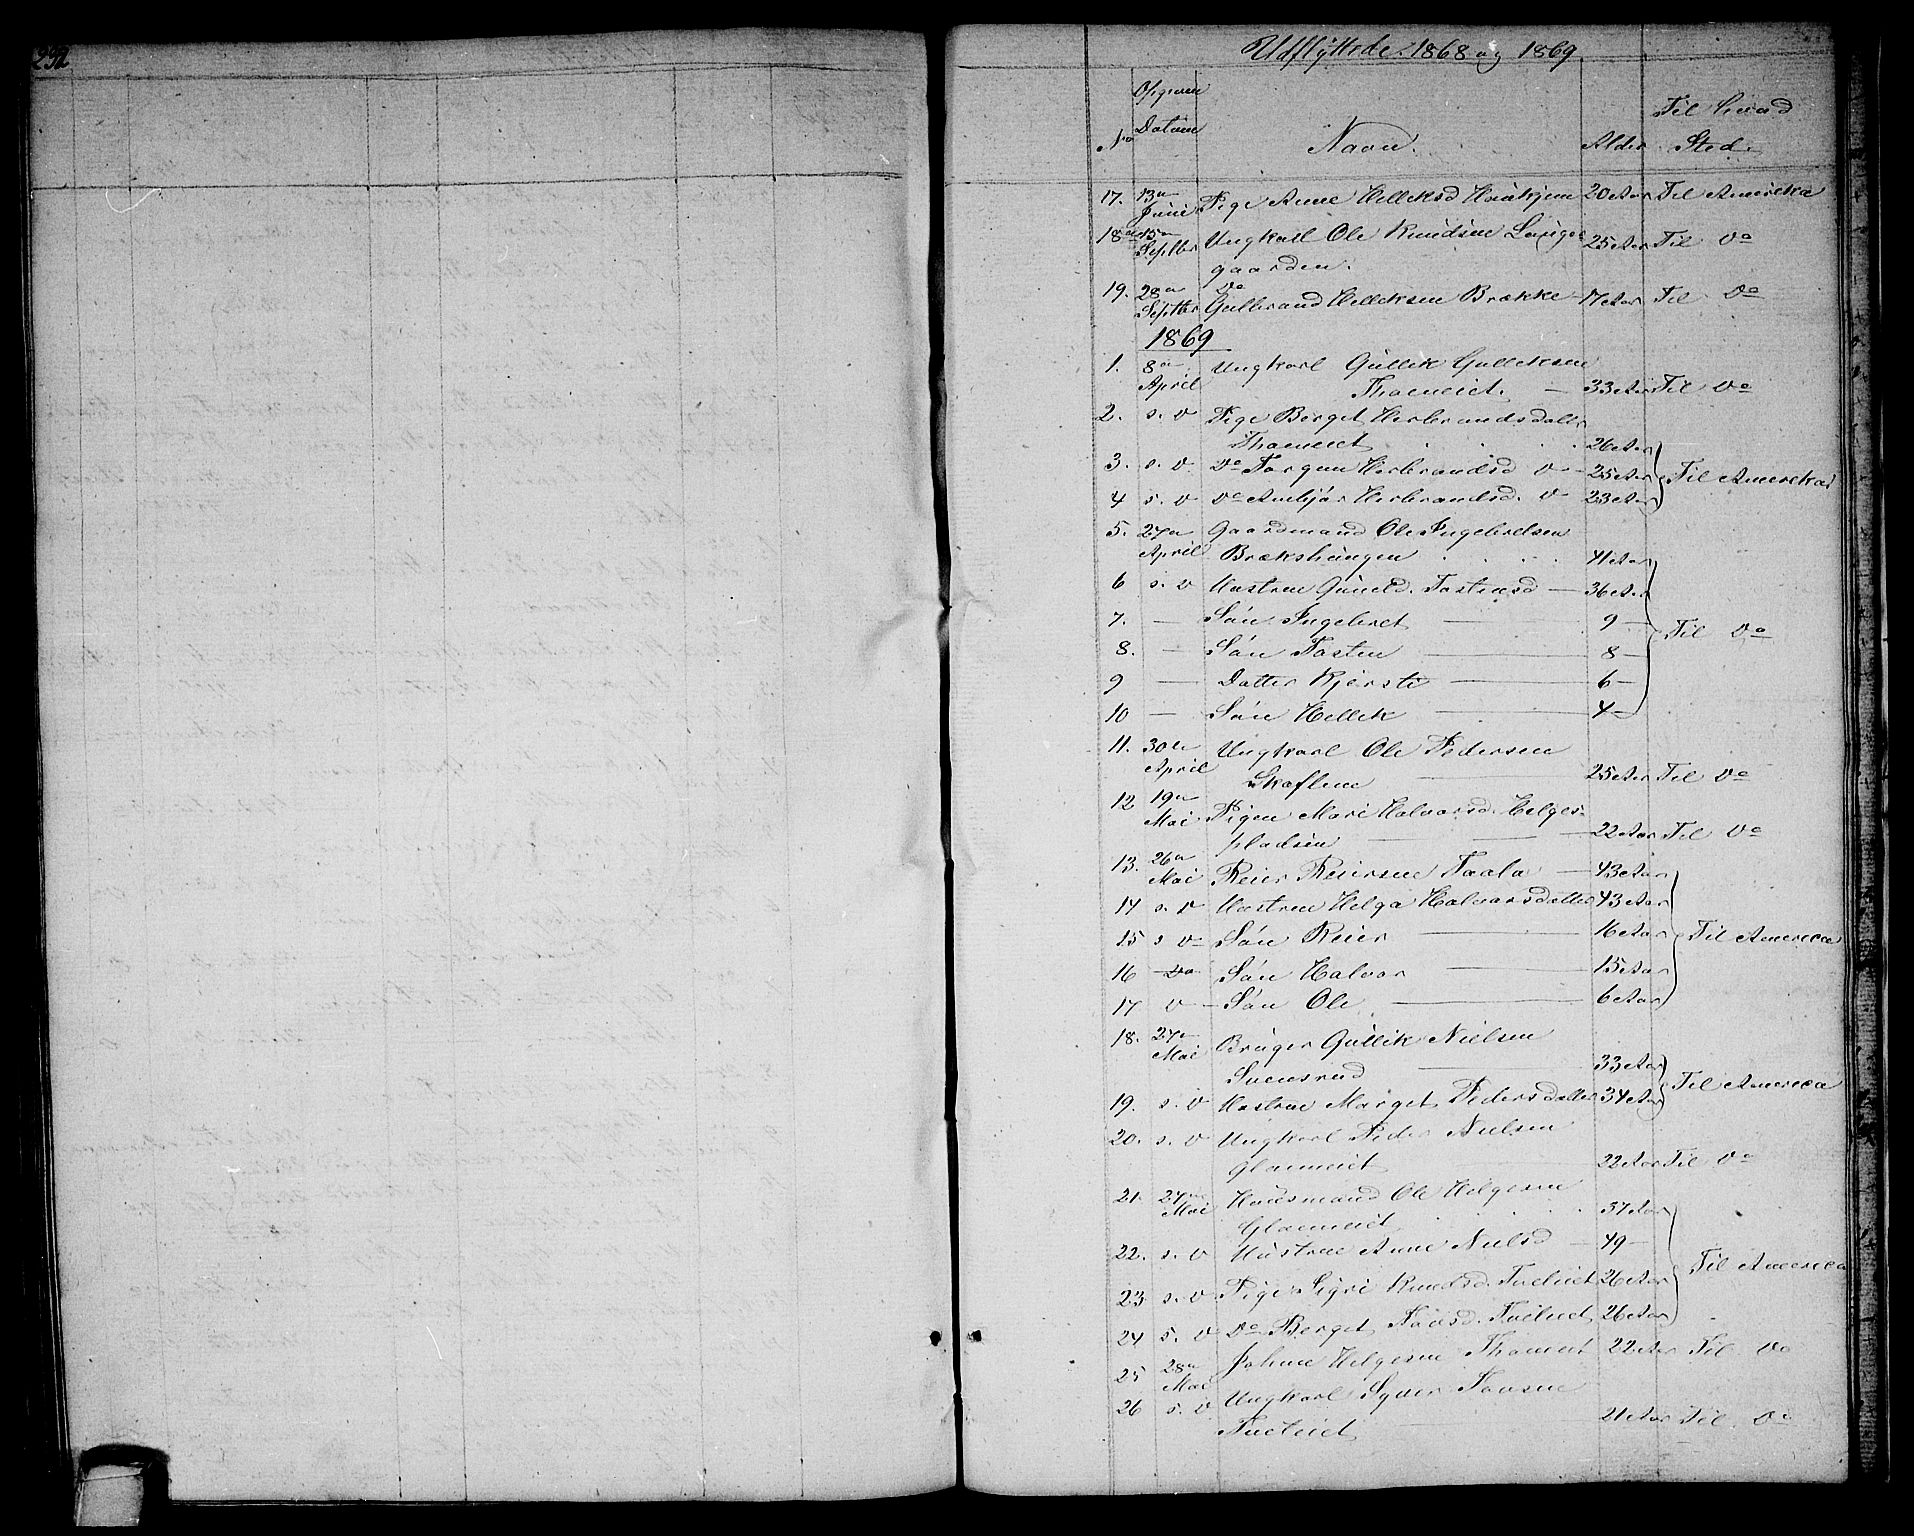 232
Udflyttede 1868 og 1869
No Opgivne Datum Navn. Alder Til hvad Sted.
17. 13de Juni Pige Anne Helleksd 20 Aar Til Amerika
18 15de Septbr Ungkall Ole Knudsen Langegaarden. 25 Aar Til Do
19. 28de Septbr Do Gulbrand Helleksen Brække 17 Aar Til Do
1869
1. 8de April Ungkarl Gullik Gulleksen
Thoeneiet. 33 Aar Til Do
2. s. D Pige Berget Herbrandsdatter
Thoeneiet 26 Aar
3. s. D Do Torgun Herbrandsd D 25 Aar Til Amerika
4 s. D Do Anbjør Herbrandsd. D 23 Aar
5. 27de April Gaardmand Ole Ingebretsen
Brækshaugen 41 Aar
6 s. D Hustrue Gunild. Tostensd 36 Aar
7. — Søn Ingebret 9 — Til Do
8. — Søn Tosten 8 —
9 — Datter Kjersti 6 —
10 — Søn Hellek 4 —
11. 30de April Ungkarl Ole Pedersen
Skaflem 25 Aar Til Do
12 19de Mai Pigen Mari Halvorsd. Helges-
pladsen 22 Aar Til Do
13. 26de Mai Reier Reiersen Taala 43 Aar
14 s. D Hustrue Helga Halvorsdatter 43 Aar
15 s D Søn Reier 16 Aar Til America
16 Do Søn Halvor 15 Aar
17 D Søn Ole 6 Aar
18. 27de Mai Bruger Gullik Nielsen
Svensrud 33 Aar Til America
19. s. D Hustrue Marget Pedersdatter 34 Aar
20. s. D Ungkarl Peder Nielsen
Glaimeiet 22 Aar Til Do
21. 27de Mai Huusmand Ole Helgesen
Glaimeiet 37 Aar
22. s. D Hustrue Anne Nielsd 49 — Til America
23 s. D Pige Sigri Knudsd. Tueleiet 26 Aar
24 s. D Do Berget Tovsd. Tueleiet 26 Aar
25 28de Mai Johne Helgesen Thoneiet 22 Aar Til Do
26 s. D Ungkarl Syver Tovsen
Tueleiet 21 Aar Til Do